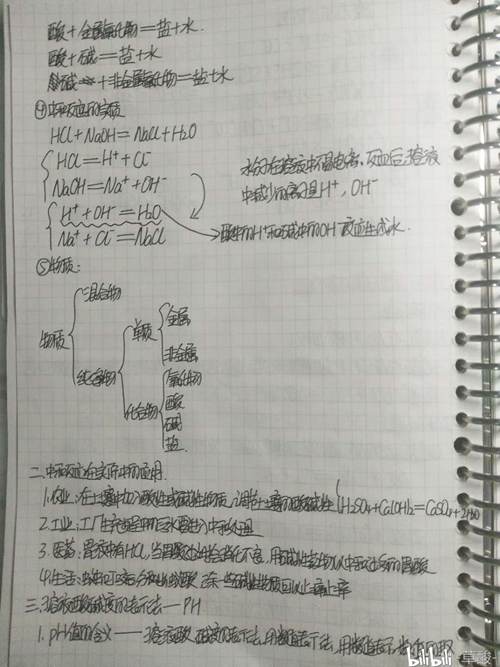 酸+金属氧化物=盐+水
酸+碱=盐+水
碱+非金属氧化物=盐+水
④中和反应的实质
HCl+NaOH=NaCl+H₂O
HCl=H⁺+Cl⁻
NaOH=Na⁺+OH⁻
H⁺+OH⁻=H₂O
Na⁺+Cl⁻=NaCl
水分子在溶液中不易电离,反应后,溶液
中减少的离子是H⁺,OH⁻
酸中的H⁺和碱中的OH⁻反应生成水.
⑤物质:
物质
混合物
纯净物
单质
金属
非金属
化合物
氧化物
酸
碱
盐
二.中和反应在实际中的应用.
1.农业:在土壤中加入酸性或碱性物质,调节土壤的酸碱性(H₂SO₄+Ca(OH)₂=CaSO₄+2H₂O
2.工业:工厂生产过程中的污水需进行中和处理
3.医药:胃液中有HCl,当胃酸过多时会消化不良,用碱性药物以中和过多的胃酸
4.生活:
三.溶液酸碱度的表示法—PH
1.pH值的含义——溶液酸、碱度的表示法,用
bilibili